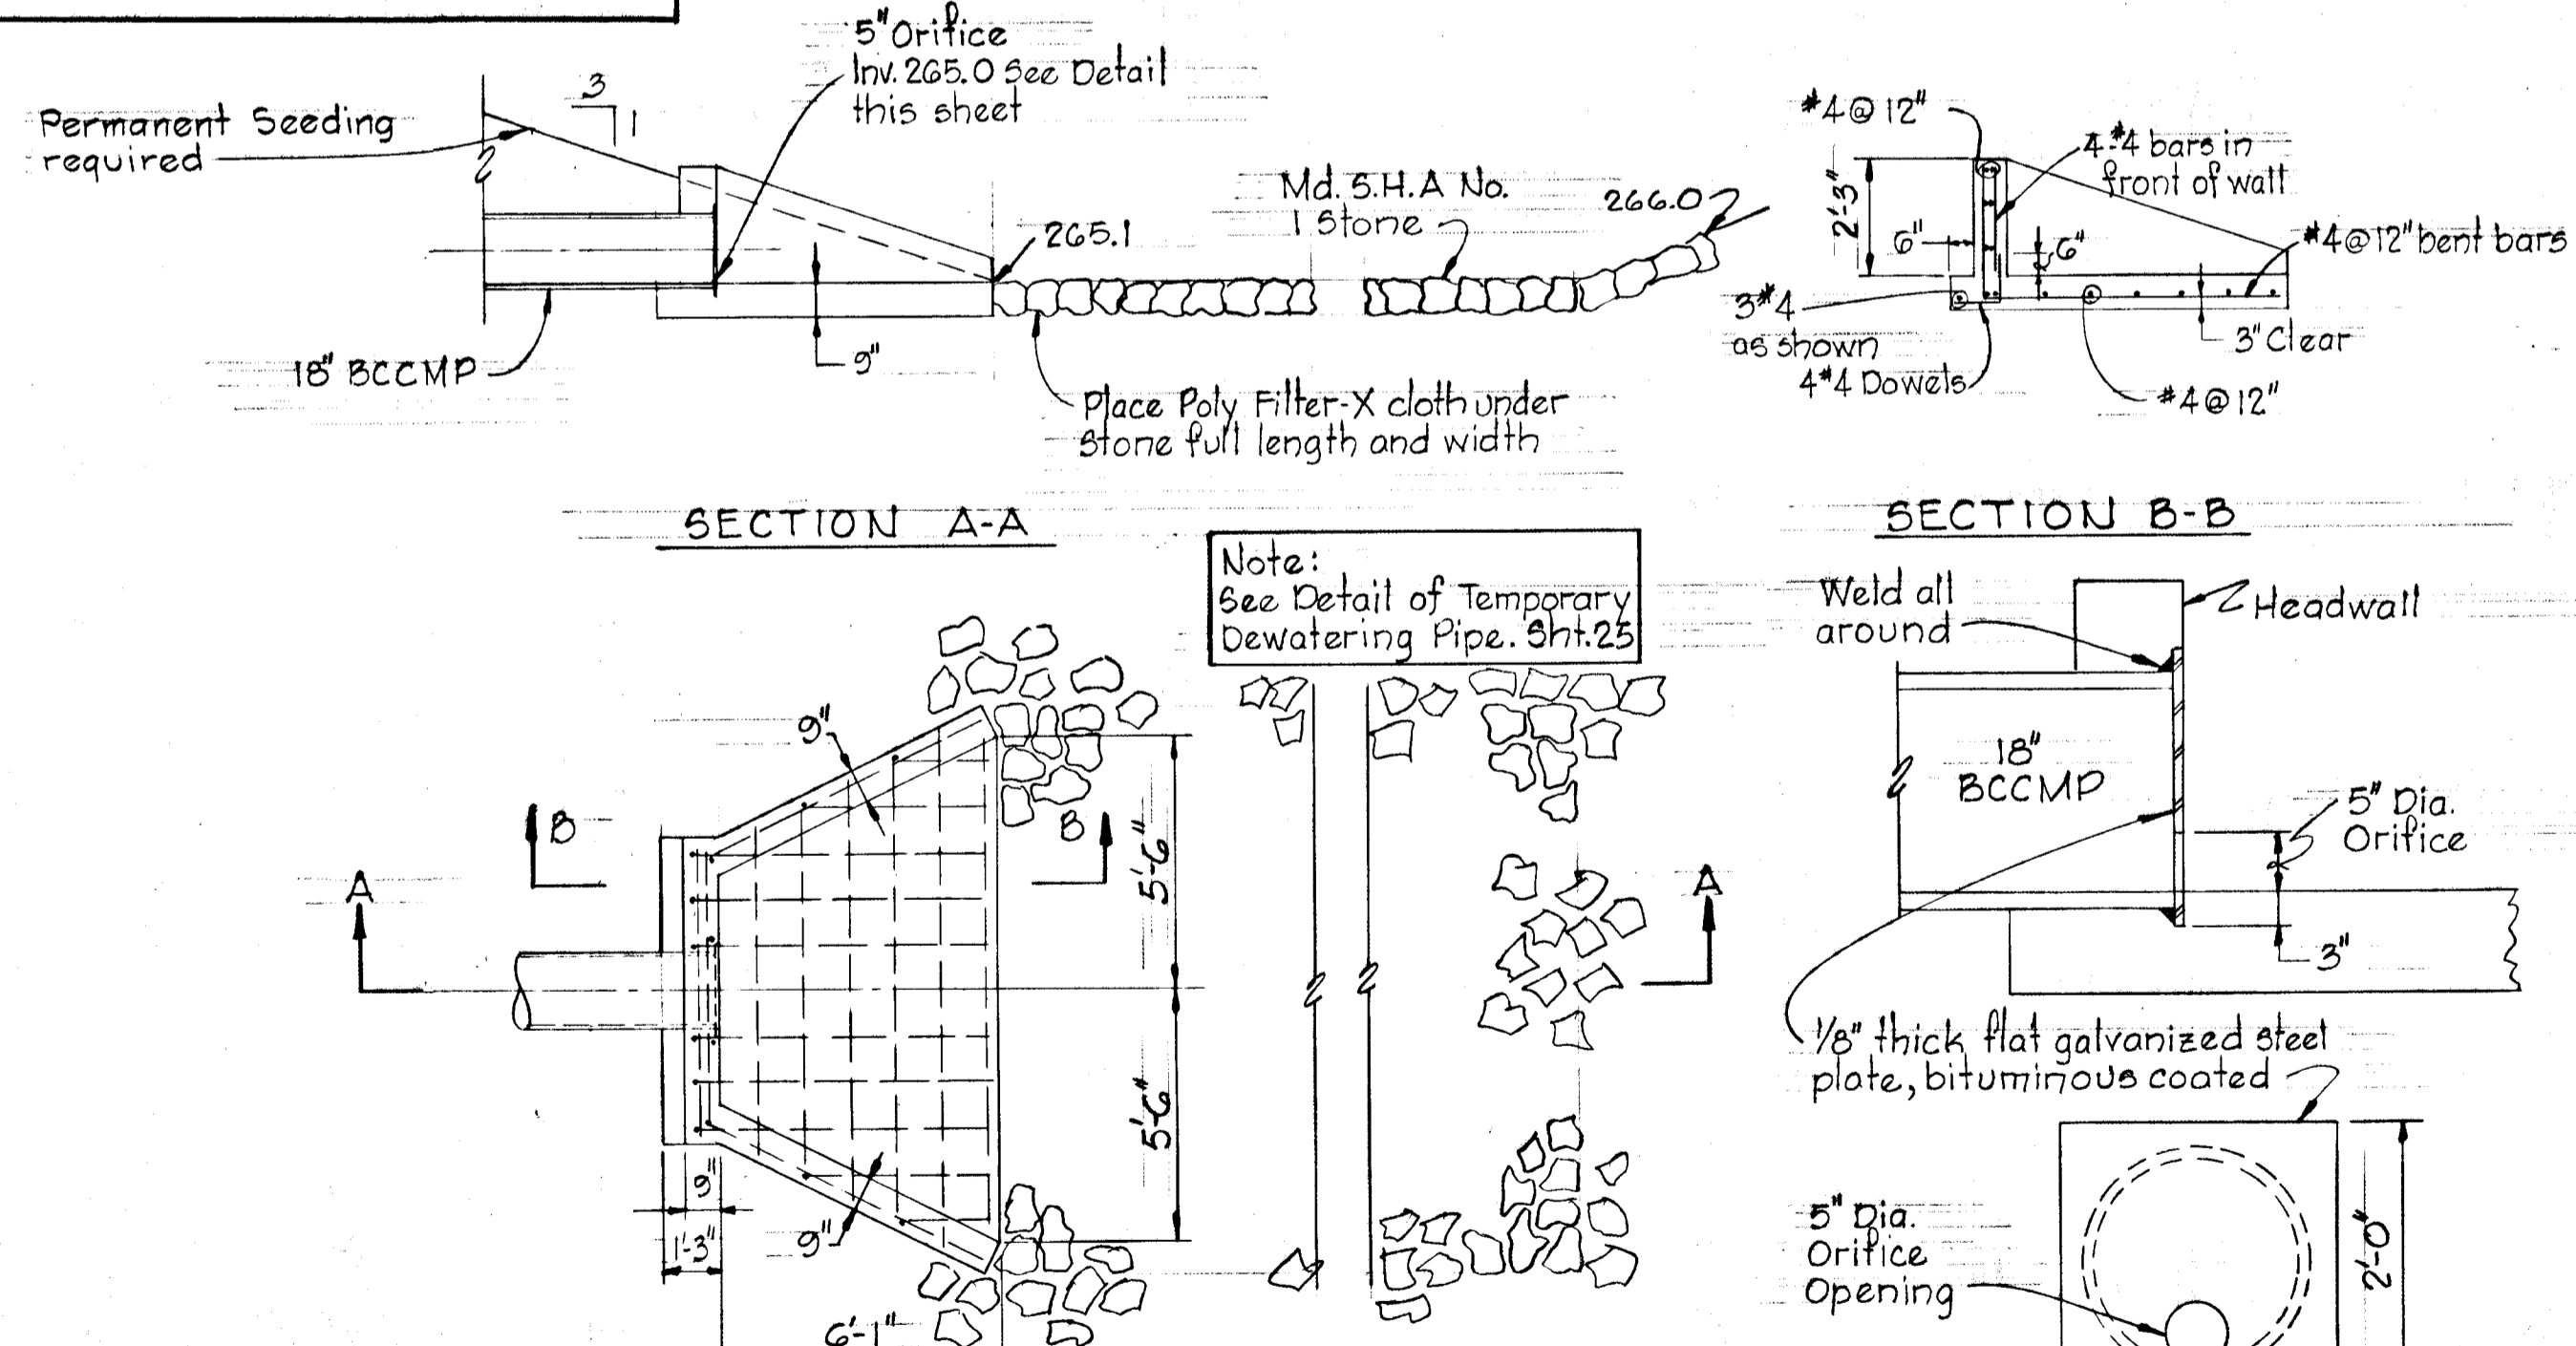 5" Orifice
Inv. 265.0 See Detail
this sheet
3
1
Permanent Seeding
required
265.1
Md. S.H.A No.
1 Stone
266.0
18" BCCMP
9"
Place Poly Filter-X cloth under
Stone full length and width
SECTION A-A
#4@12"
4-#4 bars in
front of wall
2'-3"
6"
6"
#4@12" bent bars
3#4
as shown
4#4 Dowels
3" Clear
#4@12"
SECTION B-B
Note:
See Detail of Temporary
Dewatering Pipe. Sht. 25
9"
B
B
A
A
5'-6"
5'-6"
9"
1'-3"
9"
6'-1"
Weld all
around
Headwall
18"
BCCMP
5" Dia.
Orifice
3"
1/8" thick flat galvanized steel
plate, bituminous coated
5" Dia.
Orifice
Opening
2'-0"